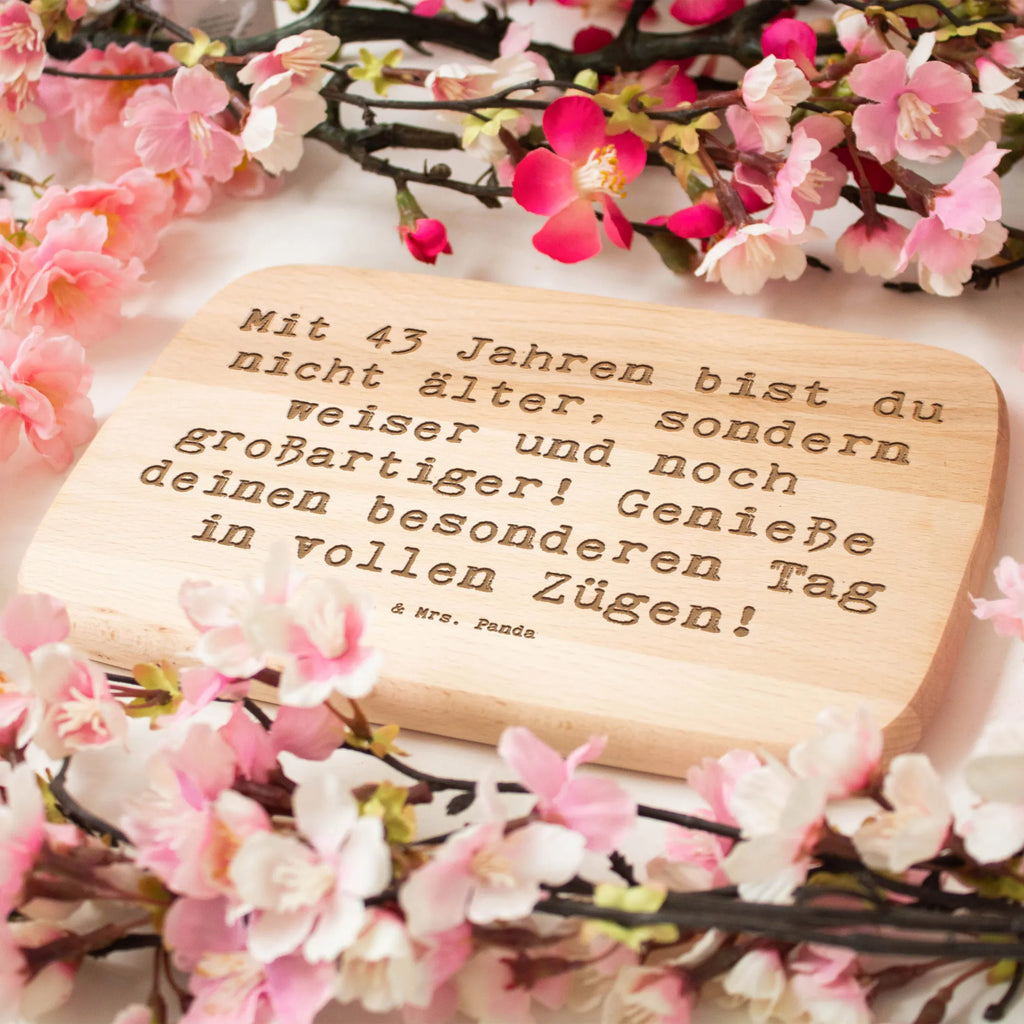 Mit 43 Jahren bist du
nicht älter, sondern
weiser und noch
großartiger! Genieße
deinen besonderen Tag
in vollen Zügen!
& Mrs. Panda